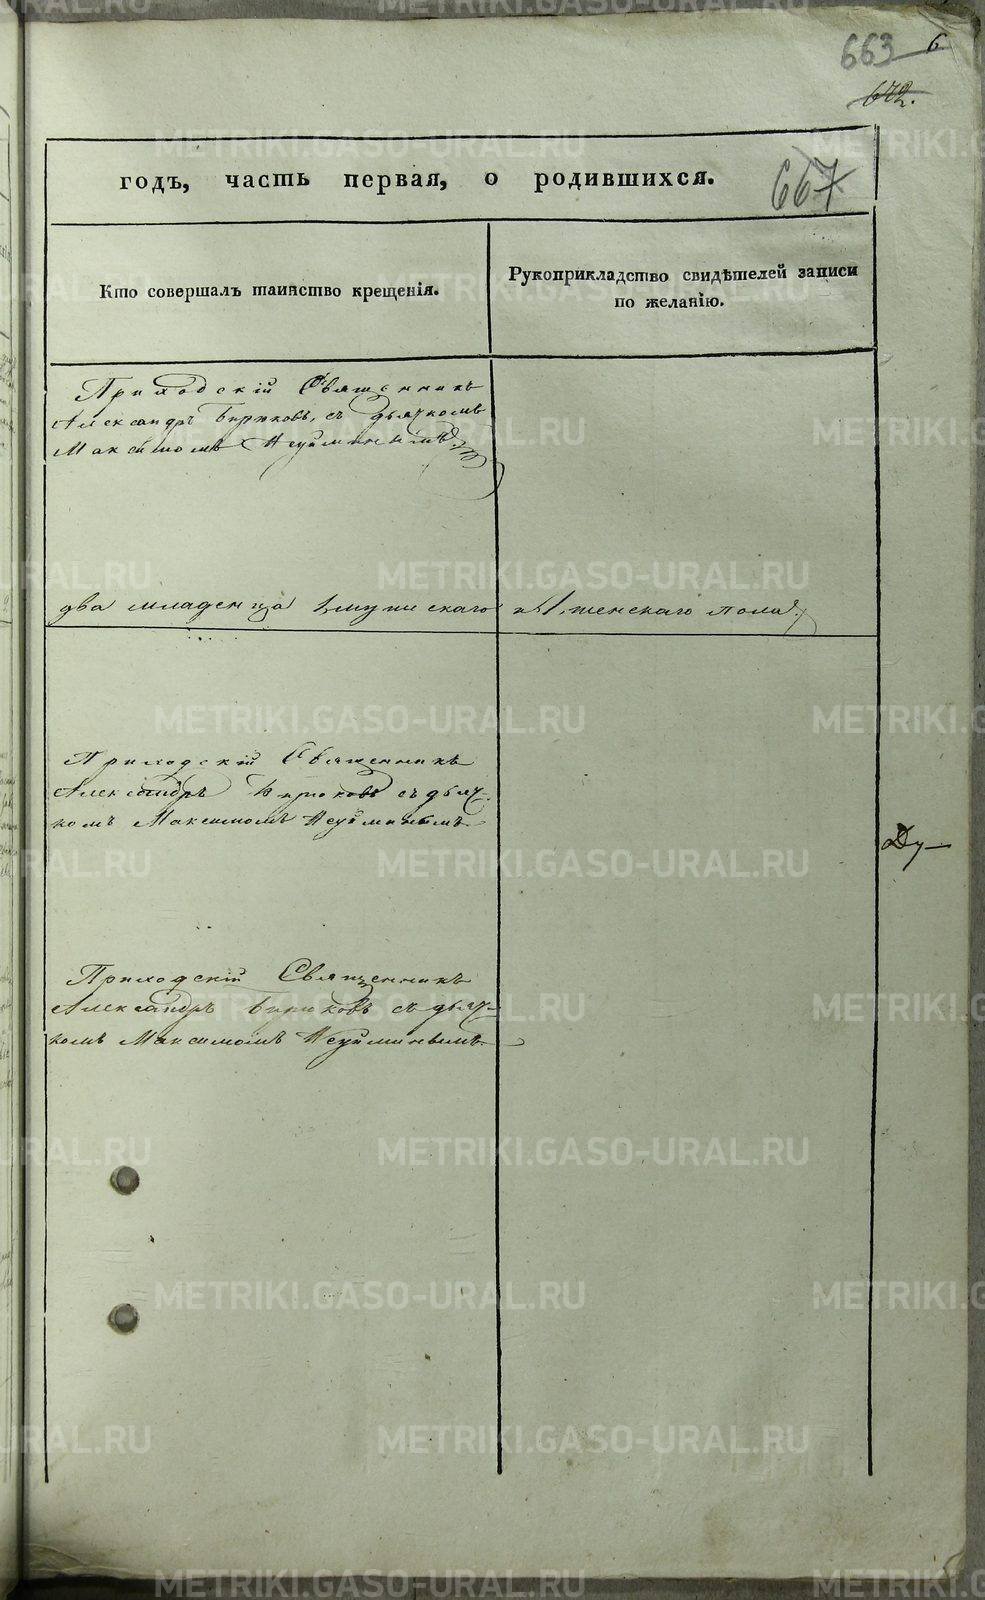 663 6
672.
667
годъ, часть первая, о родившихся.
Кто совершалъ таинство крещенія.
Рукоприкладство свидѣтелей записи
по желанію.
Приходскій Священникъ
Александръ Бирюковъ, съ дьячкомъ
Максимомъ Неуйминымъ
два младенца 1 мужескаго и 1, женскаго пола.
Приходскій Священникъ
Александръ Бирюковъ съ дьяч-
комъ Максимомъ Неуйминымъ
Ду—
Приходскій Священникъ
Александръ Бирюковъ съ дьяч-
комъ Максимомъ Неуйминымъ
METRIKI.GASO-URAL.RU